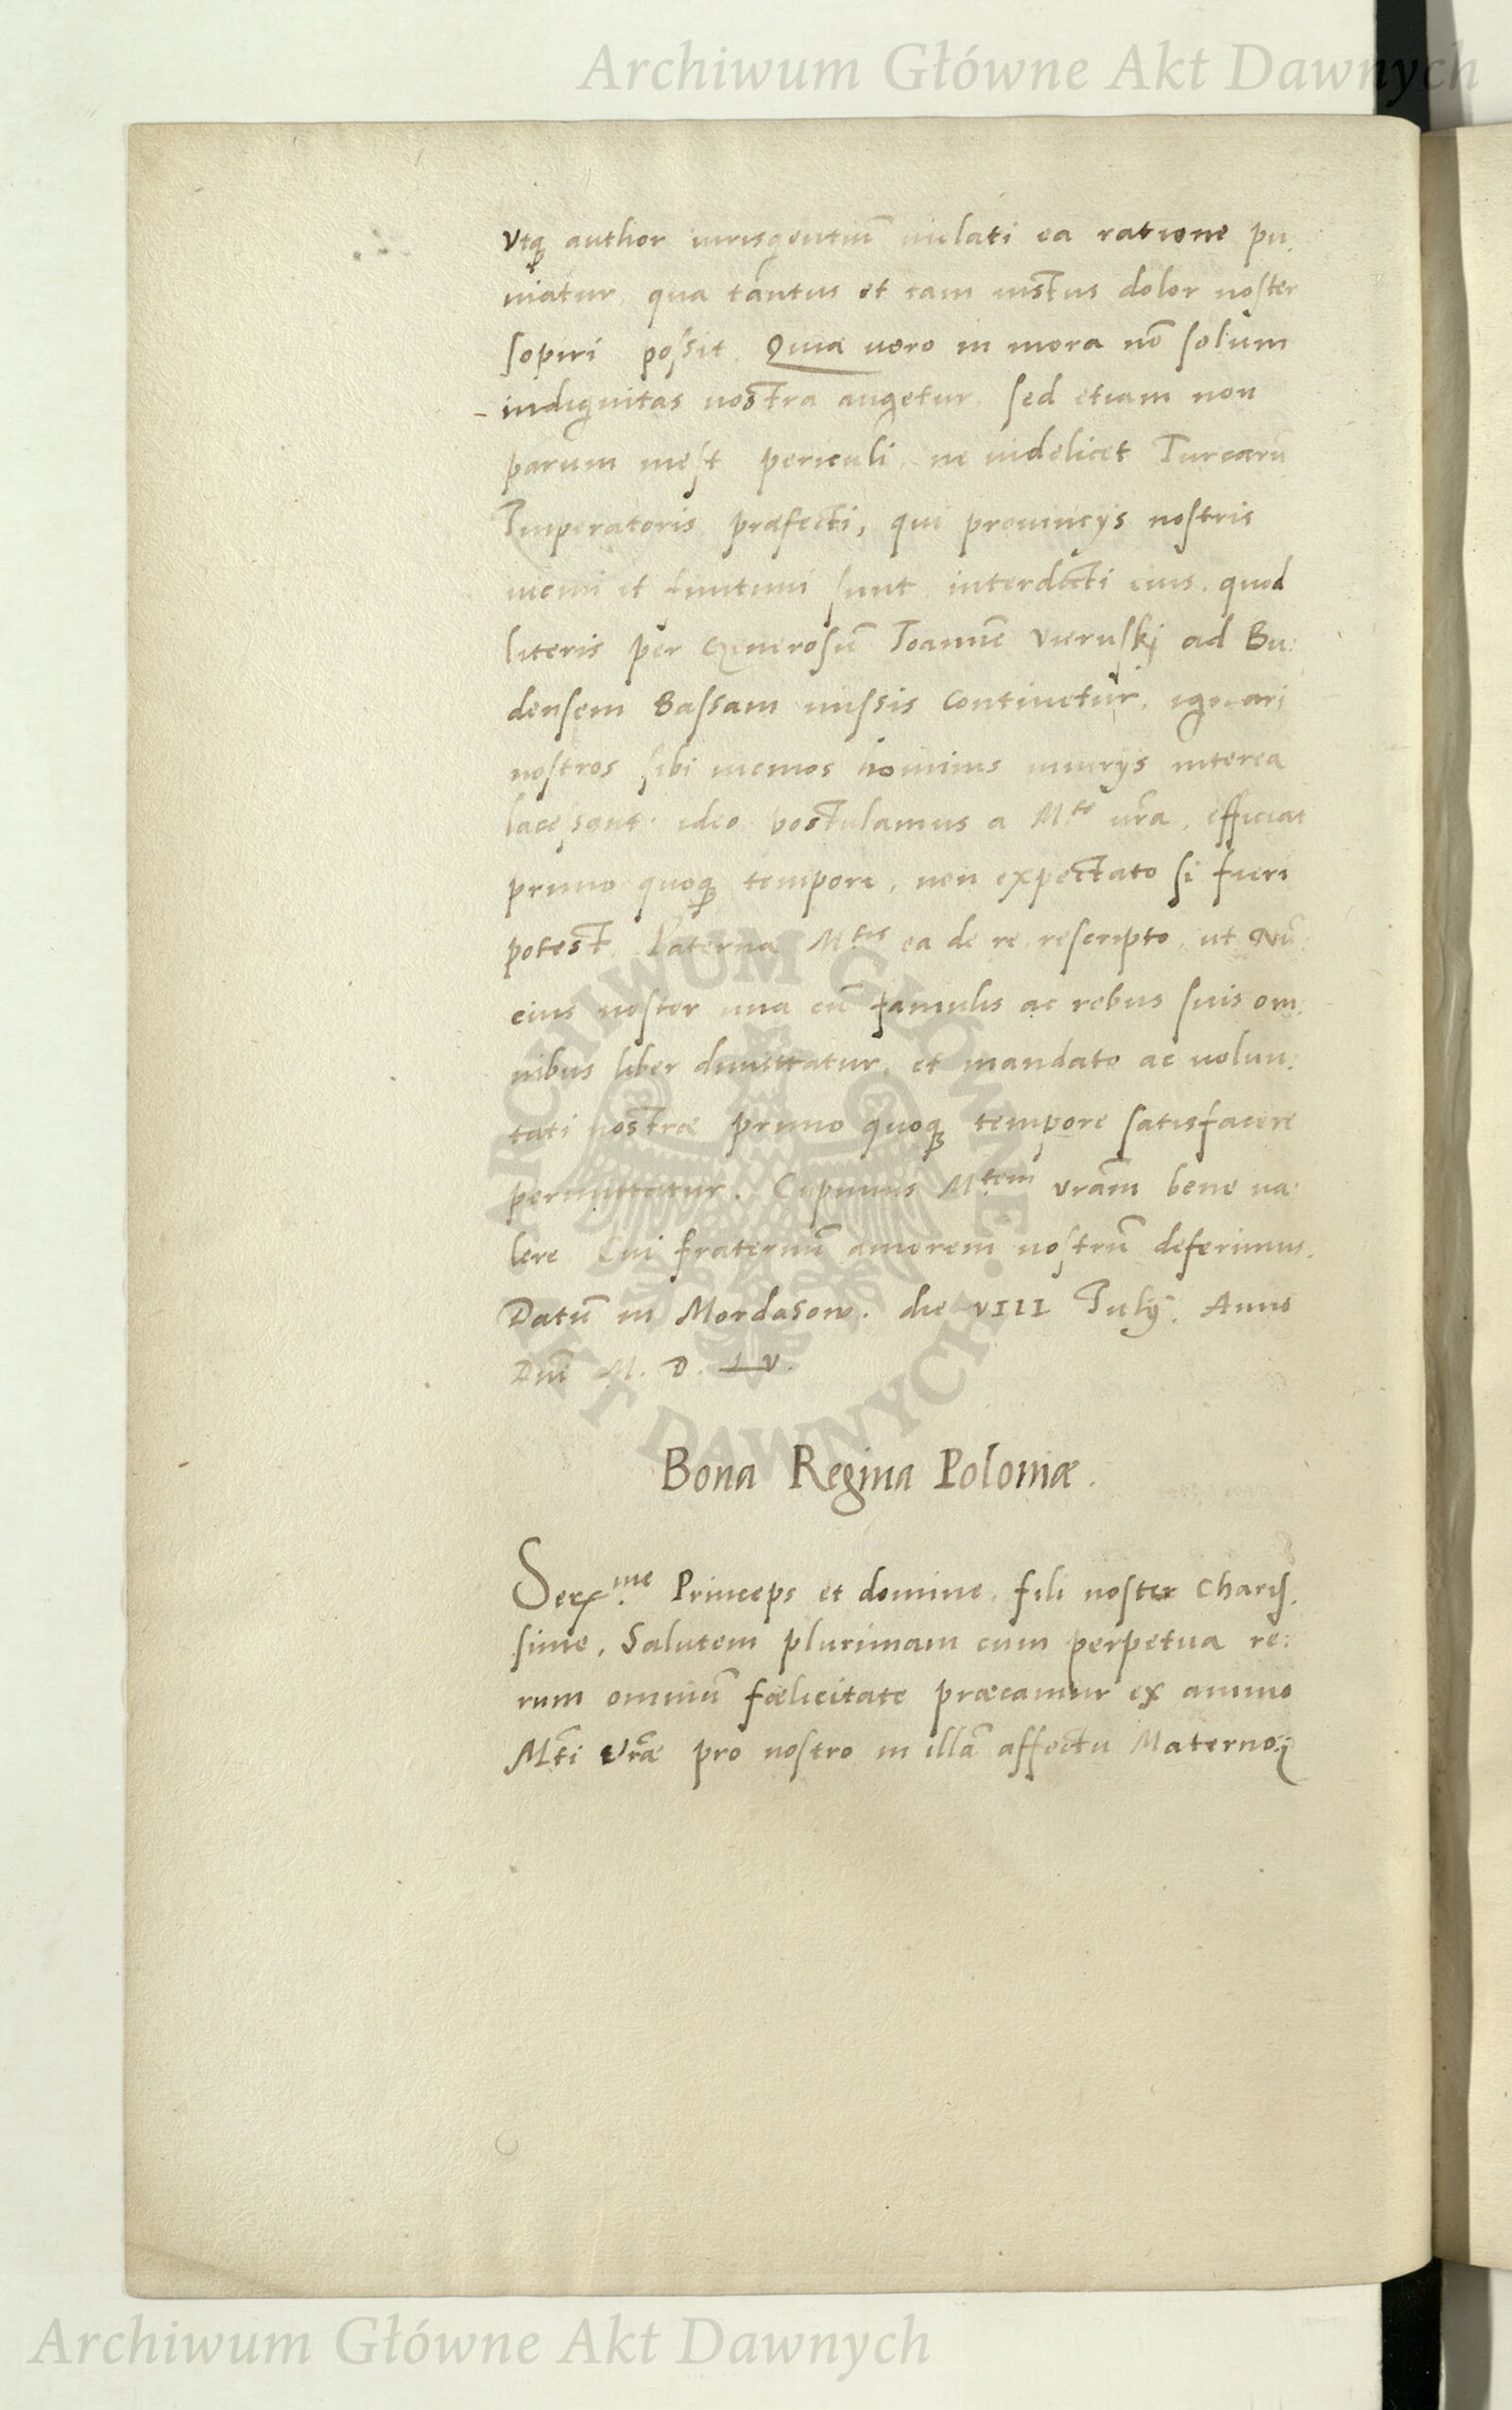 Archiwum Główne Akt Dawnych
Vtq author iurisgentiū uiolati ea ratione pu:
niatur, qua tantus et tam iustus dolor noster
sopiri possit. Quia uero in mora nō solum
indignitas nostra augetur, sed etiam non
parum inest periculi, ne uidelicet Turcarū
Imperatoris præfecti, qui prouincijs nostris
uicini et finitimi sunt, interdicti eius, quod
literis per Generosū Joannē Vieruskj ad Bu:
densem Bassam missis continetur, ignari
nostros sibi uicinos homines iniurijs interea
lacessant: ideo postulamus a M.te vrā, efficiat
primo quoq tempore, non expectato si fieri
potest Paterna M.tis ea de re rescripto, ut Nū:
cius noster una cū famulis ac rebus suis om:
nibus liber dimittatur, et mandato ac uolun:
tati nostræ primo quoq tempore satisfacere
permittatur. Cupimus M.tem vrām bene ua:
lere Cui fraternū amorem nostrū deferimus.
Datū in Mordasow. die VIII July. Anno
Dnī M. D. LV.
Bona Regina Poloniæ.
Serme Princeps et domine, fili noster Charis:
sime, Salutem plurimam cum perpetua re:
rum omniū fœlicitate præcamur ex animo
Mti Vræ pro nostro in illā affectu Materno:
ARCHIWUM GŁÓWNE AKT DAWNYCH
Archiwum Główne Akt Dawnych